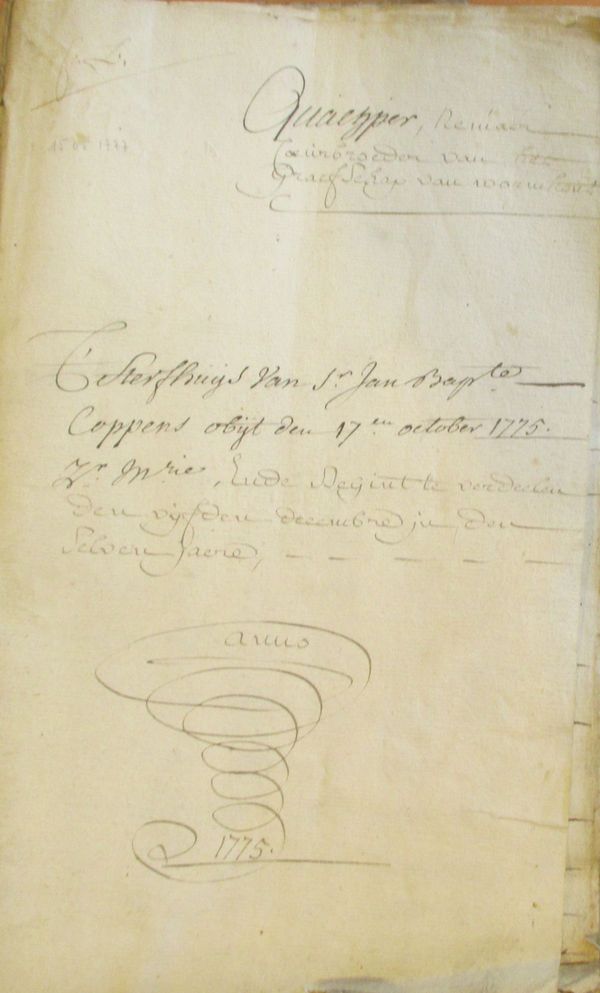 Quaetyper, Remaer
Ceurbroeder van het
Graefschap van wormhout
T' Sterfhuys Van Sr. Jan Bapte.
Coppens obijt den 17en october 1775.
Zr. Mrie. Ende Regint te verdeelen
den vijfden decembre in den
Selven Jaere,
anno
1775.